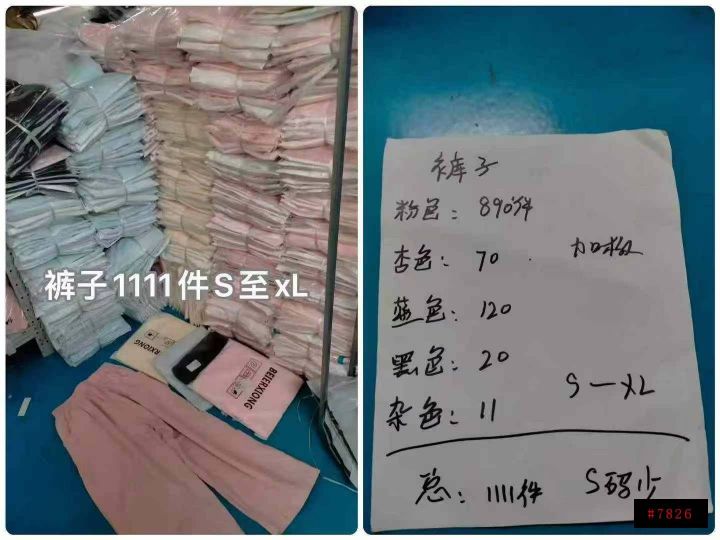 裤子1111件S至xL
BEIERXIONG
RXIONG
裤子
粉色：890件
杏色：70
加松
蓝色：120
黑色：20
S—XL
杂色：11
总：1111件
S码少
#7826